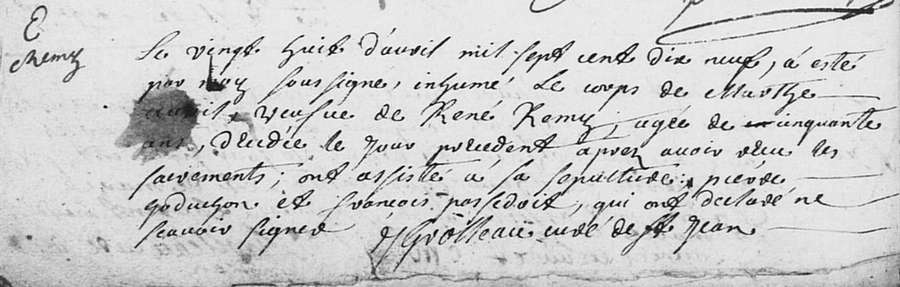 E
Remy
Le vingt huit d'avril mil sept cent dix neuf, a esté
par moy soussigné, inhumé Le corps de Marthe
veufue de René Remy, agée de cinquante
ans, décedée le jour precedent apres avoir receu les
sacrements; ont assisté a sa sepulture pierre
et françois, qui ont declaré ne
scavoir signer Grolleau curé de St Jean